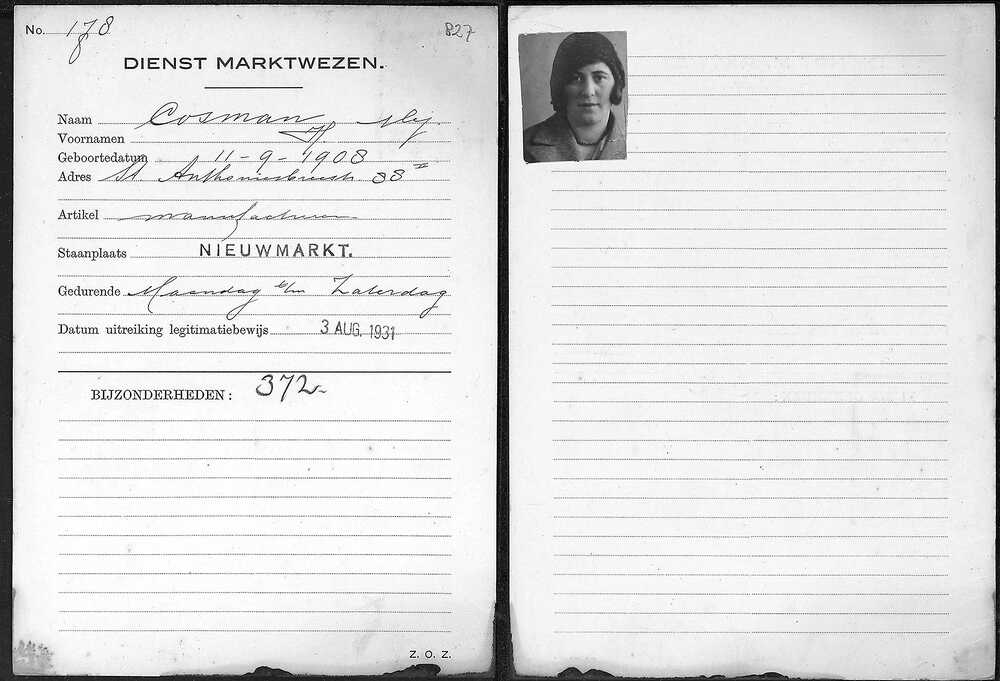 No. 178
827
DIENST MARKTWEZEN.
Naam Cosman Mej.
Voornamen H.
Geboortedatum 11-9-1908
Adres St. Anthoniesbreestr. 38 II
Artikel manufacturen
Staanplaats NIEUWMARKT.
Gedurende Maandag t/m Zaterdag
Datum uitreiking legitimatiebewijs 3 AUG. 1931
BIJZONDERHEDEN: 372-
Z. O. Z.